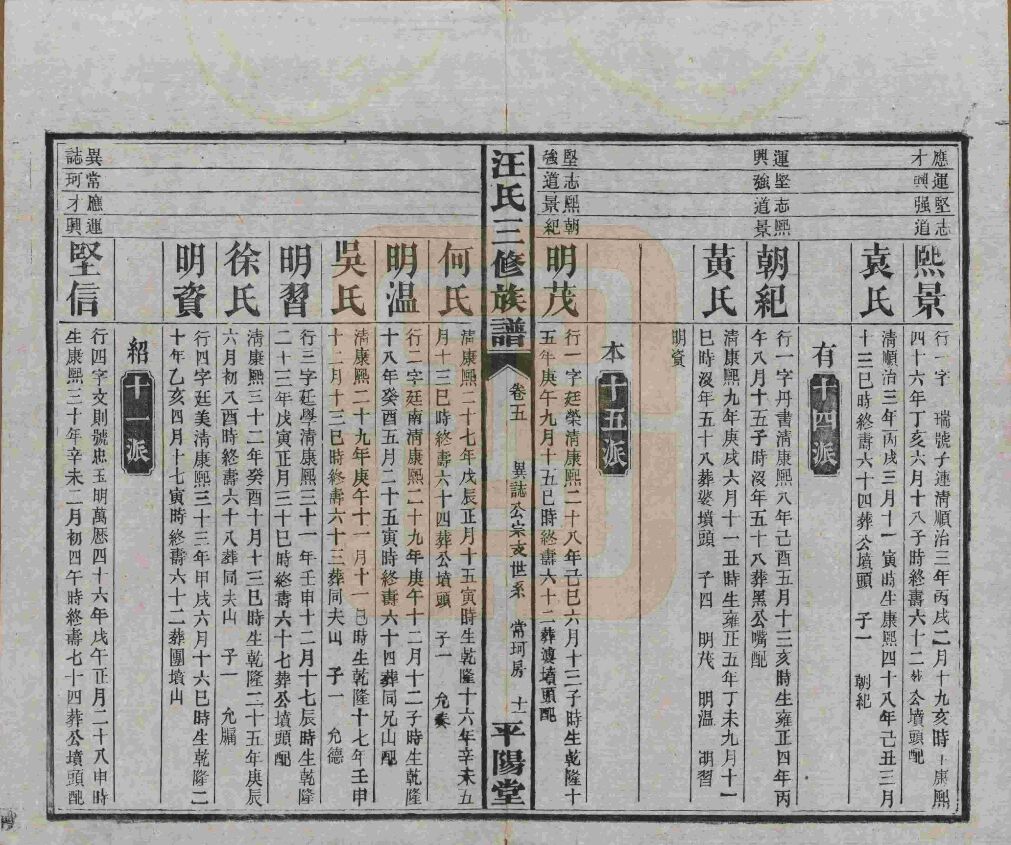 應運堅志
才興强道
熙景
行一字 瑞號子連清順治三年丙戌二月十九亥時 康熙
四十六年丁亥六月十八子時終壽六十二葬公墳頭配
袁氏
清順治三年丙戌三月十一寅時生康熙四十八年己丑三月
十三巳時終壽六十四葬公墳頭 子一 朝紀
有 十四派
運堅志熙
興強道景
朝紀
行一字丹書清康熙八年己酉五月十三亥時生雍正四年丙
午八月十五子時沒年五十八葬黑公嘴配
黃氏
清康熙九年庚戌六月十一丑時生雍正五年丁未九月十一
巳時沒年五十八葬婆墳頭 子四 明茂 明溫 明習
明資
本 十五派
堅志熙朝
強道景紀
明茂
行一字廷榮清康熙二十八年己巳六月十三子時生乾隆十
五年庚午九月十五巳時終壽六十二葬婆墳頭配
汪氏三修族譜 卷五 異誌公宗支世系 常珂房 十一 平陽堂
何氏
清康熙二十七年戊辰正月十五寅時生乾隆十六年辛未五
月十三巳時終壽六十四葬公墳頭 子一 允
明溫
行二字廷南清康熙二十九年庚午十二月十二子時生乾隆
十八年癸酉五月二十五寅時終壽六十四葬同兄山配
吳氏
清康熙二十九年庚午十一月十一巳時生乾隆十七年壬申
十二月十三巳時終壽六十三葬同夫山 子一 允德
明習
行三字廷學清康熙三十一年壬申十二月十七辰時生乾隆
二十三年戊寅正月三十巳時終壽六十七葬公墳頭配
徐氏
清康熙三十二年癸酉十月十三巳時生乾隆二十五年庚辰
六月初八酉時終壽六十八葬同夫山 子一 允
明資
行四字廷美清康熙三十三年甲戌六月十六巳時生乾隆二
十年乙亥四月十七寅時終壽六十二葬團墳山
紹 十一派
異常應運
誌珂才興
堅信
行四字文則號忠玉明萬曆四十六年戊午正月二十八申時
生康熙三十年辛未二月初四午時終壽七十四葬公墳頭配